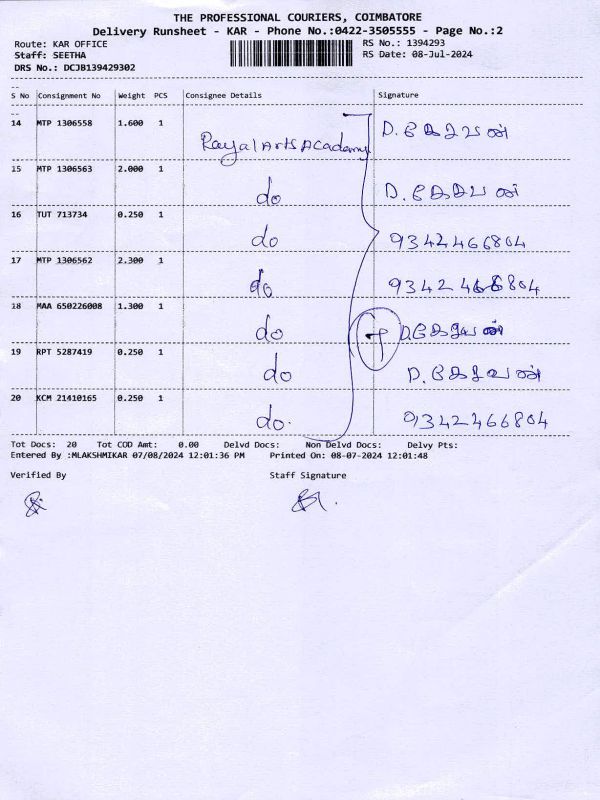 THE PROFESSIONAL COURIERS, COIMBATORE
Delivery Runsheet - KAR - Phone No.:0422-3505555 - Page No.:2
Route: KAR OFFICE RS No.: 1394293
Staff: SEETHA RS Date: 08-Jul-2024
DRS No.: DCJB139429302
S No Consignment No Weight PCS Consignee Details Signature
14 MTP 1306558 1.600 1 Royal Arts Academy D. கேசவன்
15 MTP 1306563 2.000 1 do D. கேசவன்
16 TUT 713734 0.250 1 do 9342466804
17 MTP 1306562 2.300 1 do 9342466804
18 MAA 650226008 1.300 1 do D. கேசவன்
19 RPT 5287419 0.250 1 do D. கேசவன்
20 KCM 21410165 0.250 1 do. 9342466804
Tot Docs: 20 Tot COD Amt: 0.00 Delvd Docs: Non Delvd Docs: Delvy Pts:
Entered By :MLAKSHMIKAR 07/08/2024 12:01:36 PM Printed On: 08-07-2024 12:01:48
Verified By Staff Signature